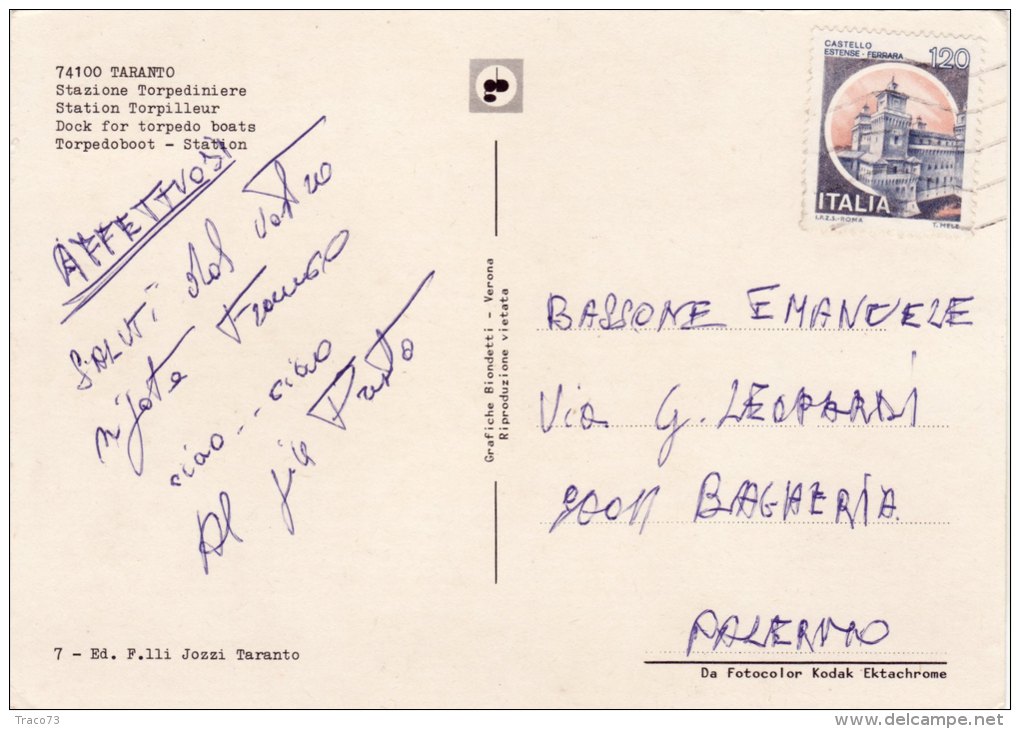 74100 TARANTO
Stazione Torpediniere
Station Torpilleur
Dock for torpedo boats
Torpedoboot - Station
AFFETTUOSI
SALUTI dal vostro
nipote Franco
ciao -- ciao
Al più Presto
7 - Ed. F.lli Jozzi Taranto
Grafiche Biondetti - Verona
Riproduzione vietata
CASTELLO
ESTENSE - FERRARA
120
ITALIA
I.P.Z.S. - ROMA
T. MELE
BASSONE EMANUELE
Via G. LEOPARDI
90011 BAGHERIA
PALERMO
Da Fotocolor Kodak Ektachrome
Traco73
www.delcampe.net